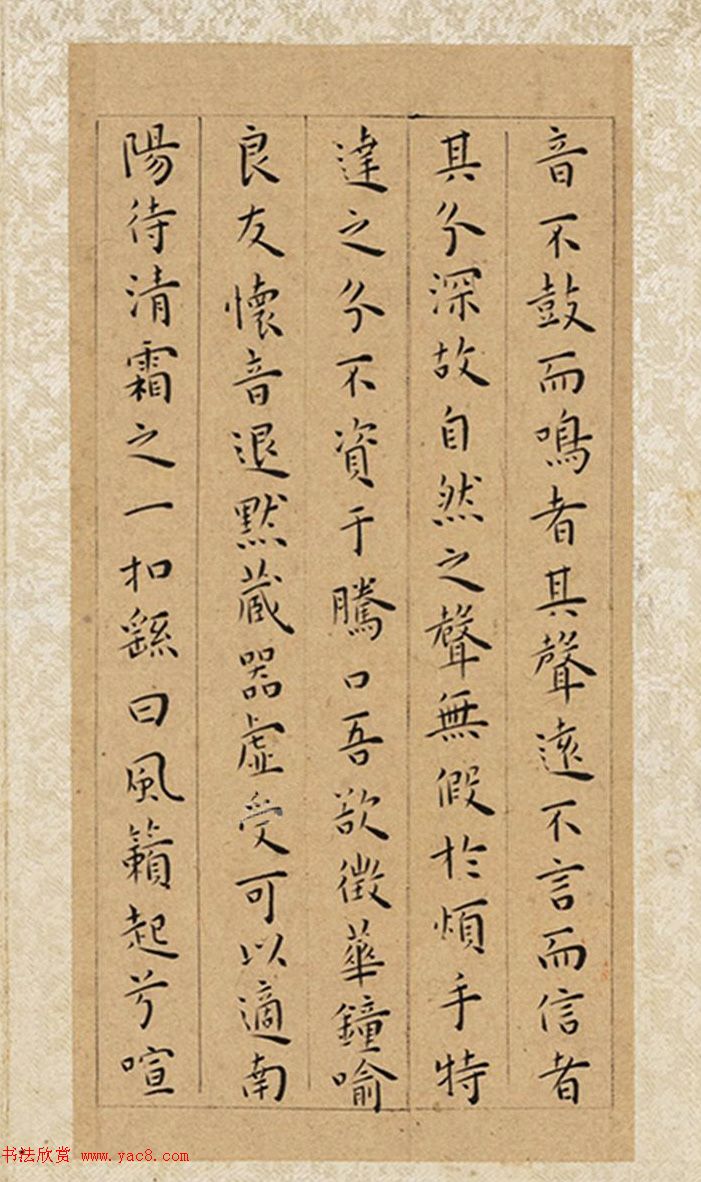 音不鼓而鳴者其聲遠不言而信者
其分深故自然之聲無假於煩手特
達之分不資于騰口吾欲徵華鐘喻
良友懷音退默蔵器虛受可以適南
陽待清霜之一扣繇曰風籟起兮喧
书法欣赏 www.yac8.com